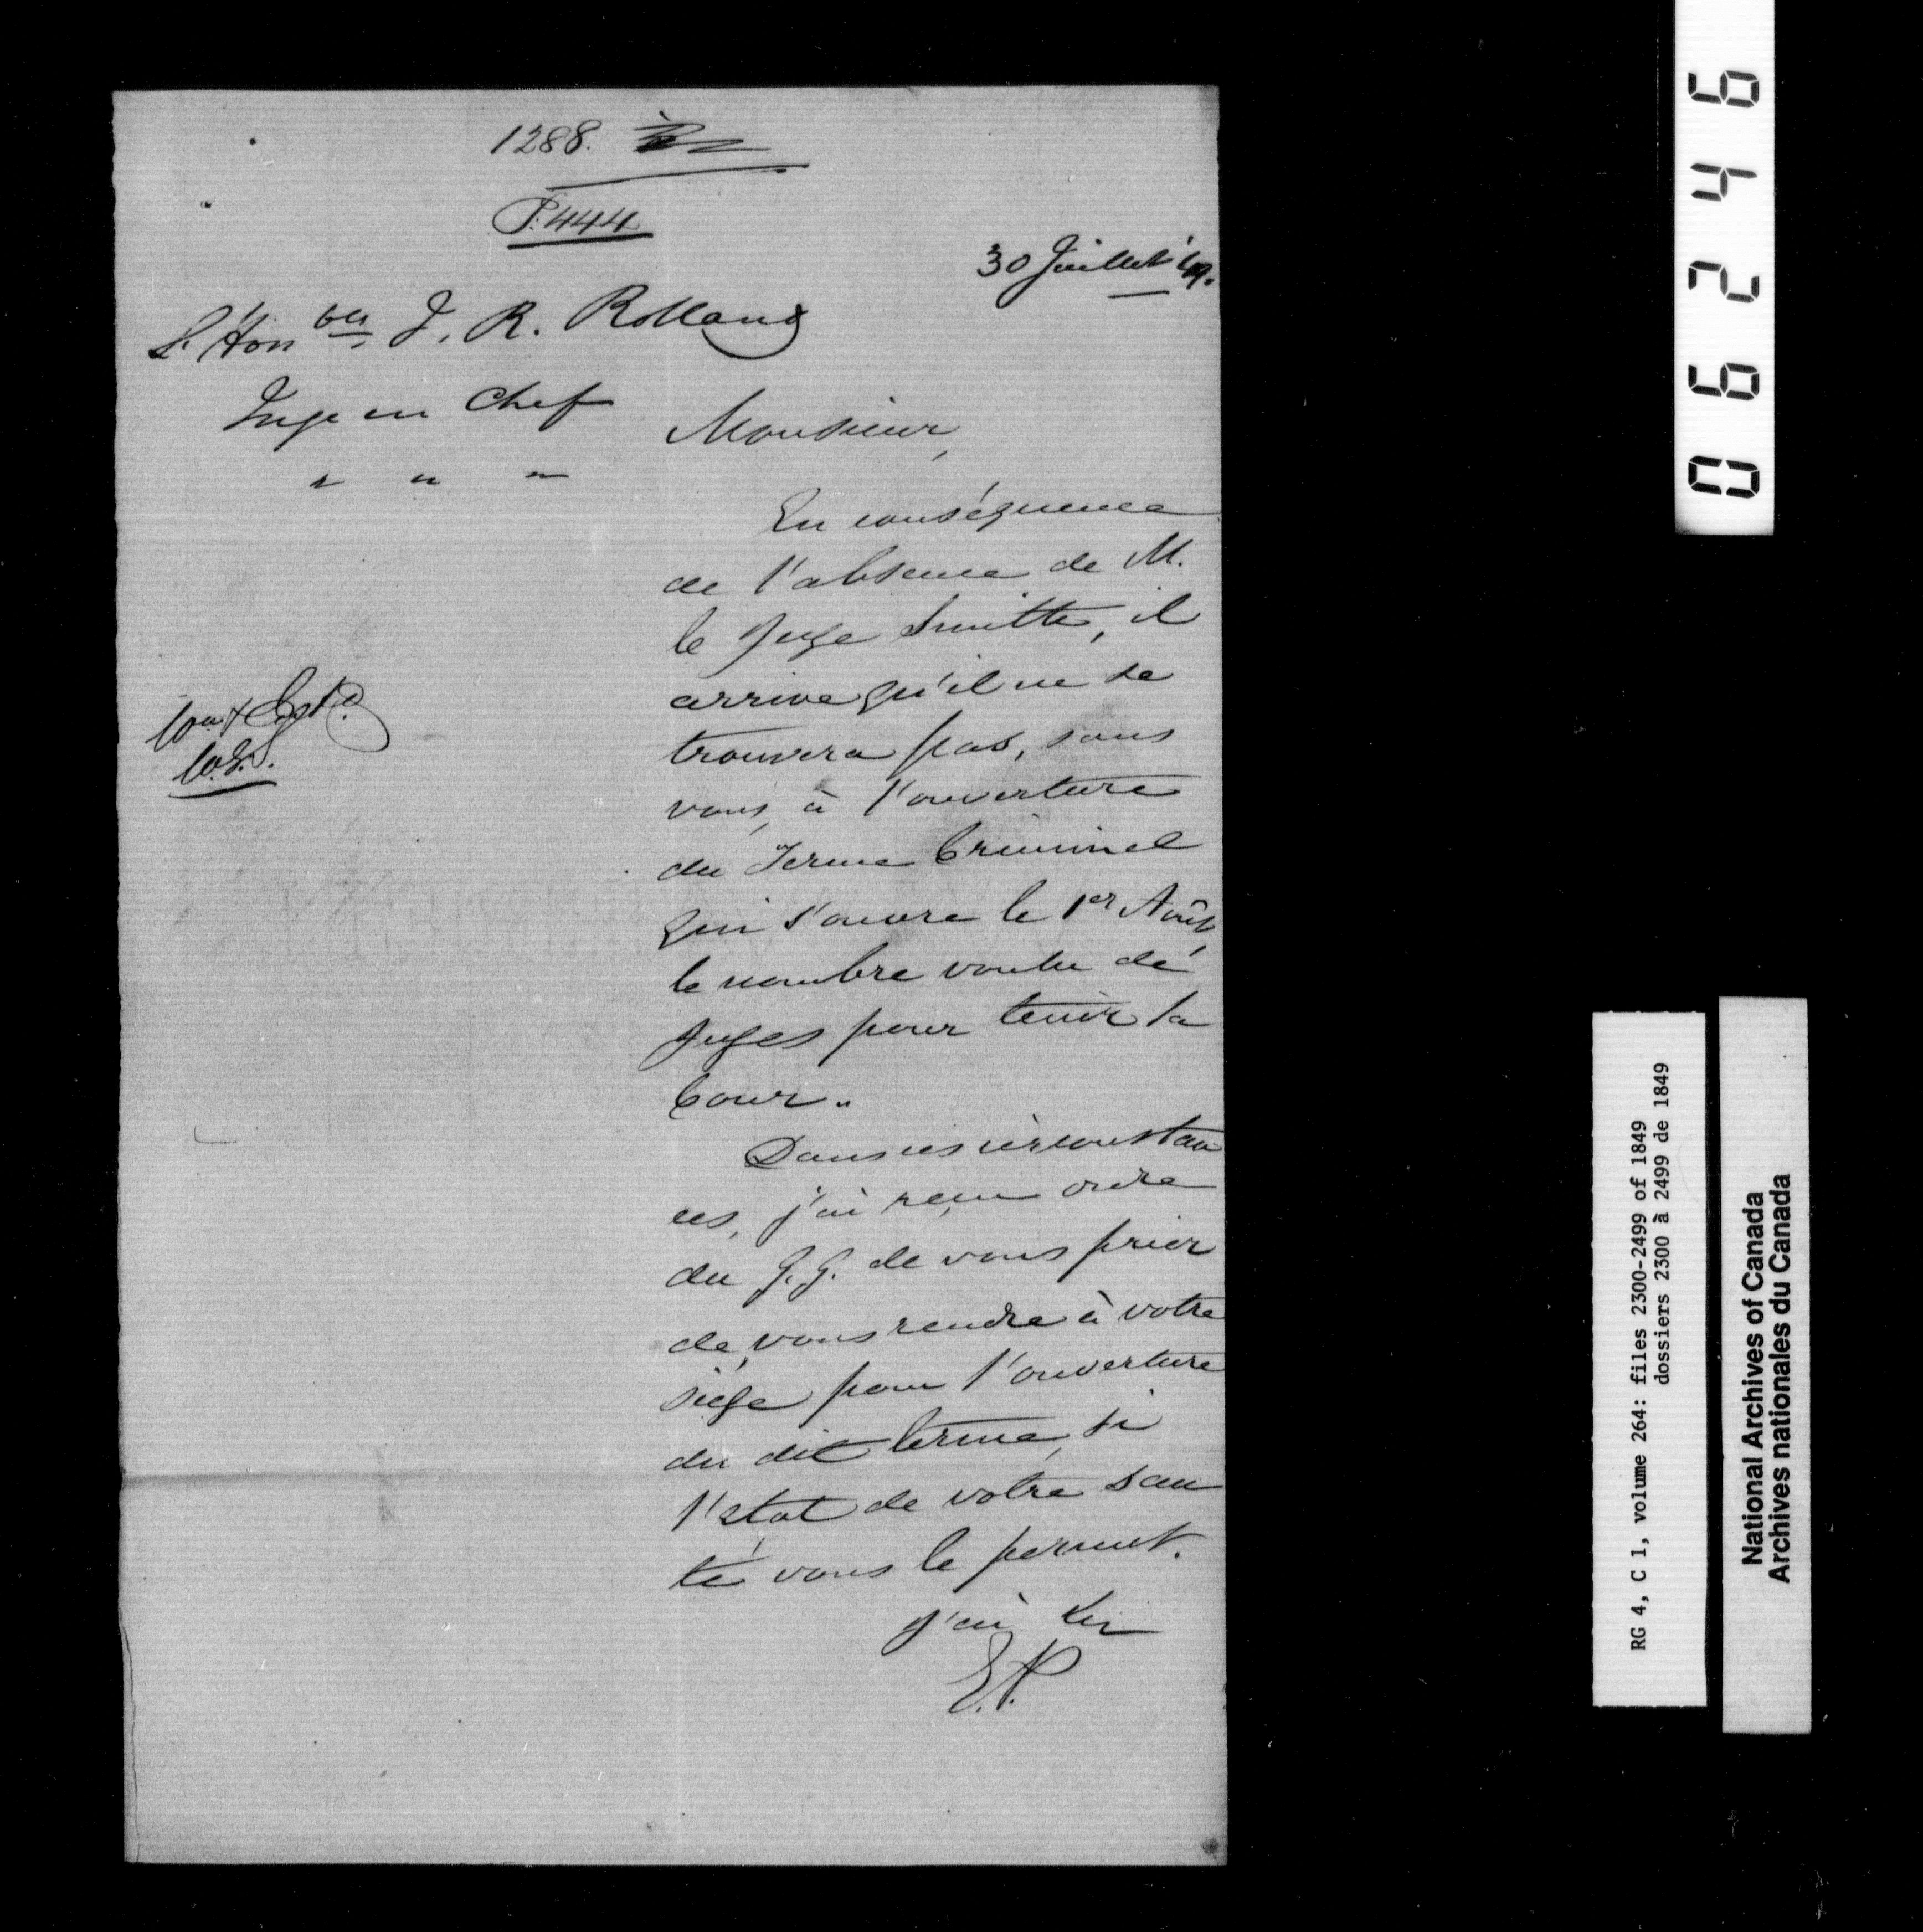 1288.
P. 444
30 Juillet '49.
L'Honble J. R. Rolland
Juge en Chef
" " "
Monsieur,
En conséquence
de l'absence de M.
le Juge Smith, il
arrive qu'il ne se
trouvera pas, sans
vous, à l'ouverture
du Terme Criminel
qui s'ouvre le 1er Août,
le nombre voulu de
Juges pour tenir la
Cour.
Dans ces circonstan
ces, j'ai reçu ordre
du G. G. de vous prier
de vous rendre à votre
siège pour l'ouverture
du dit terme, si
l'état de votre san
té vous le permet.
J'ai
E.P.
06246
RG 4, C 1, volume 264: files 2300-2499 of 1849
dossiers 2300 à 2499 de 1849
National Archives of Canada
Archives nationales du Canada